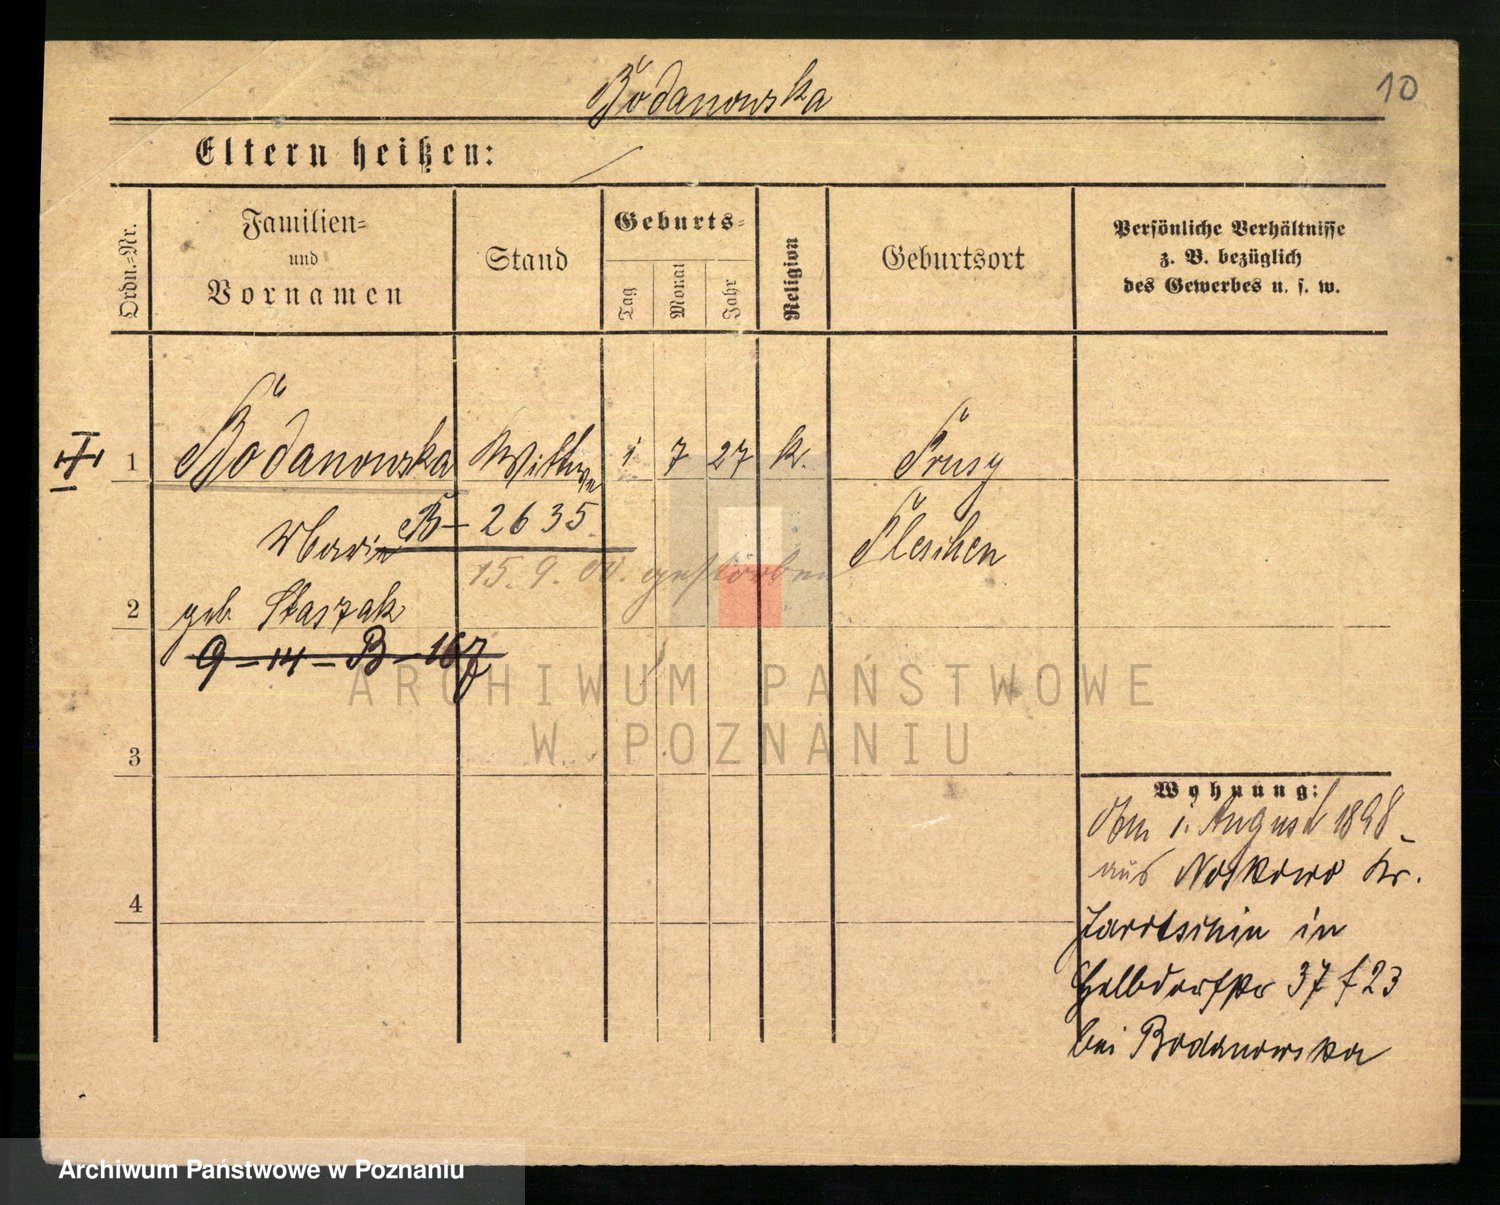 Bodanowska
10
Eltern heißen:
Ordn.-Nr.
Familien-
und
Vornamen
Stand
Geburts-
Tag
Monat
Jahr
Religion
Geburtsort
Persönliche Verhältnisse
z. B. bezüglich
des Gewerbes u. s. w.
1 Bodanowska Wittwe 1 7 27 k. Prusy
B - 2635 Pleschen
Marie
15. 9. 00. gestorben
2 geb. Staszak
9 - 14 - B - 167
3
4
Wohnung:
Am 1. August 1898
aus Noskowo Kr.
Jarotschin in
37 f 23
bei Bodanowska
ARCHIWUM PAŃSTWOWE
W POZNANIU
Archiwum Państwowe w Poznaniu